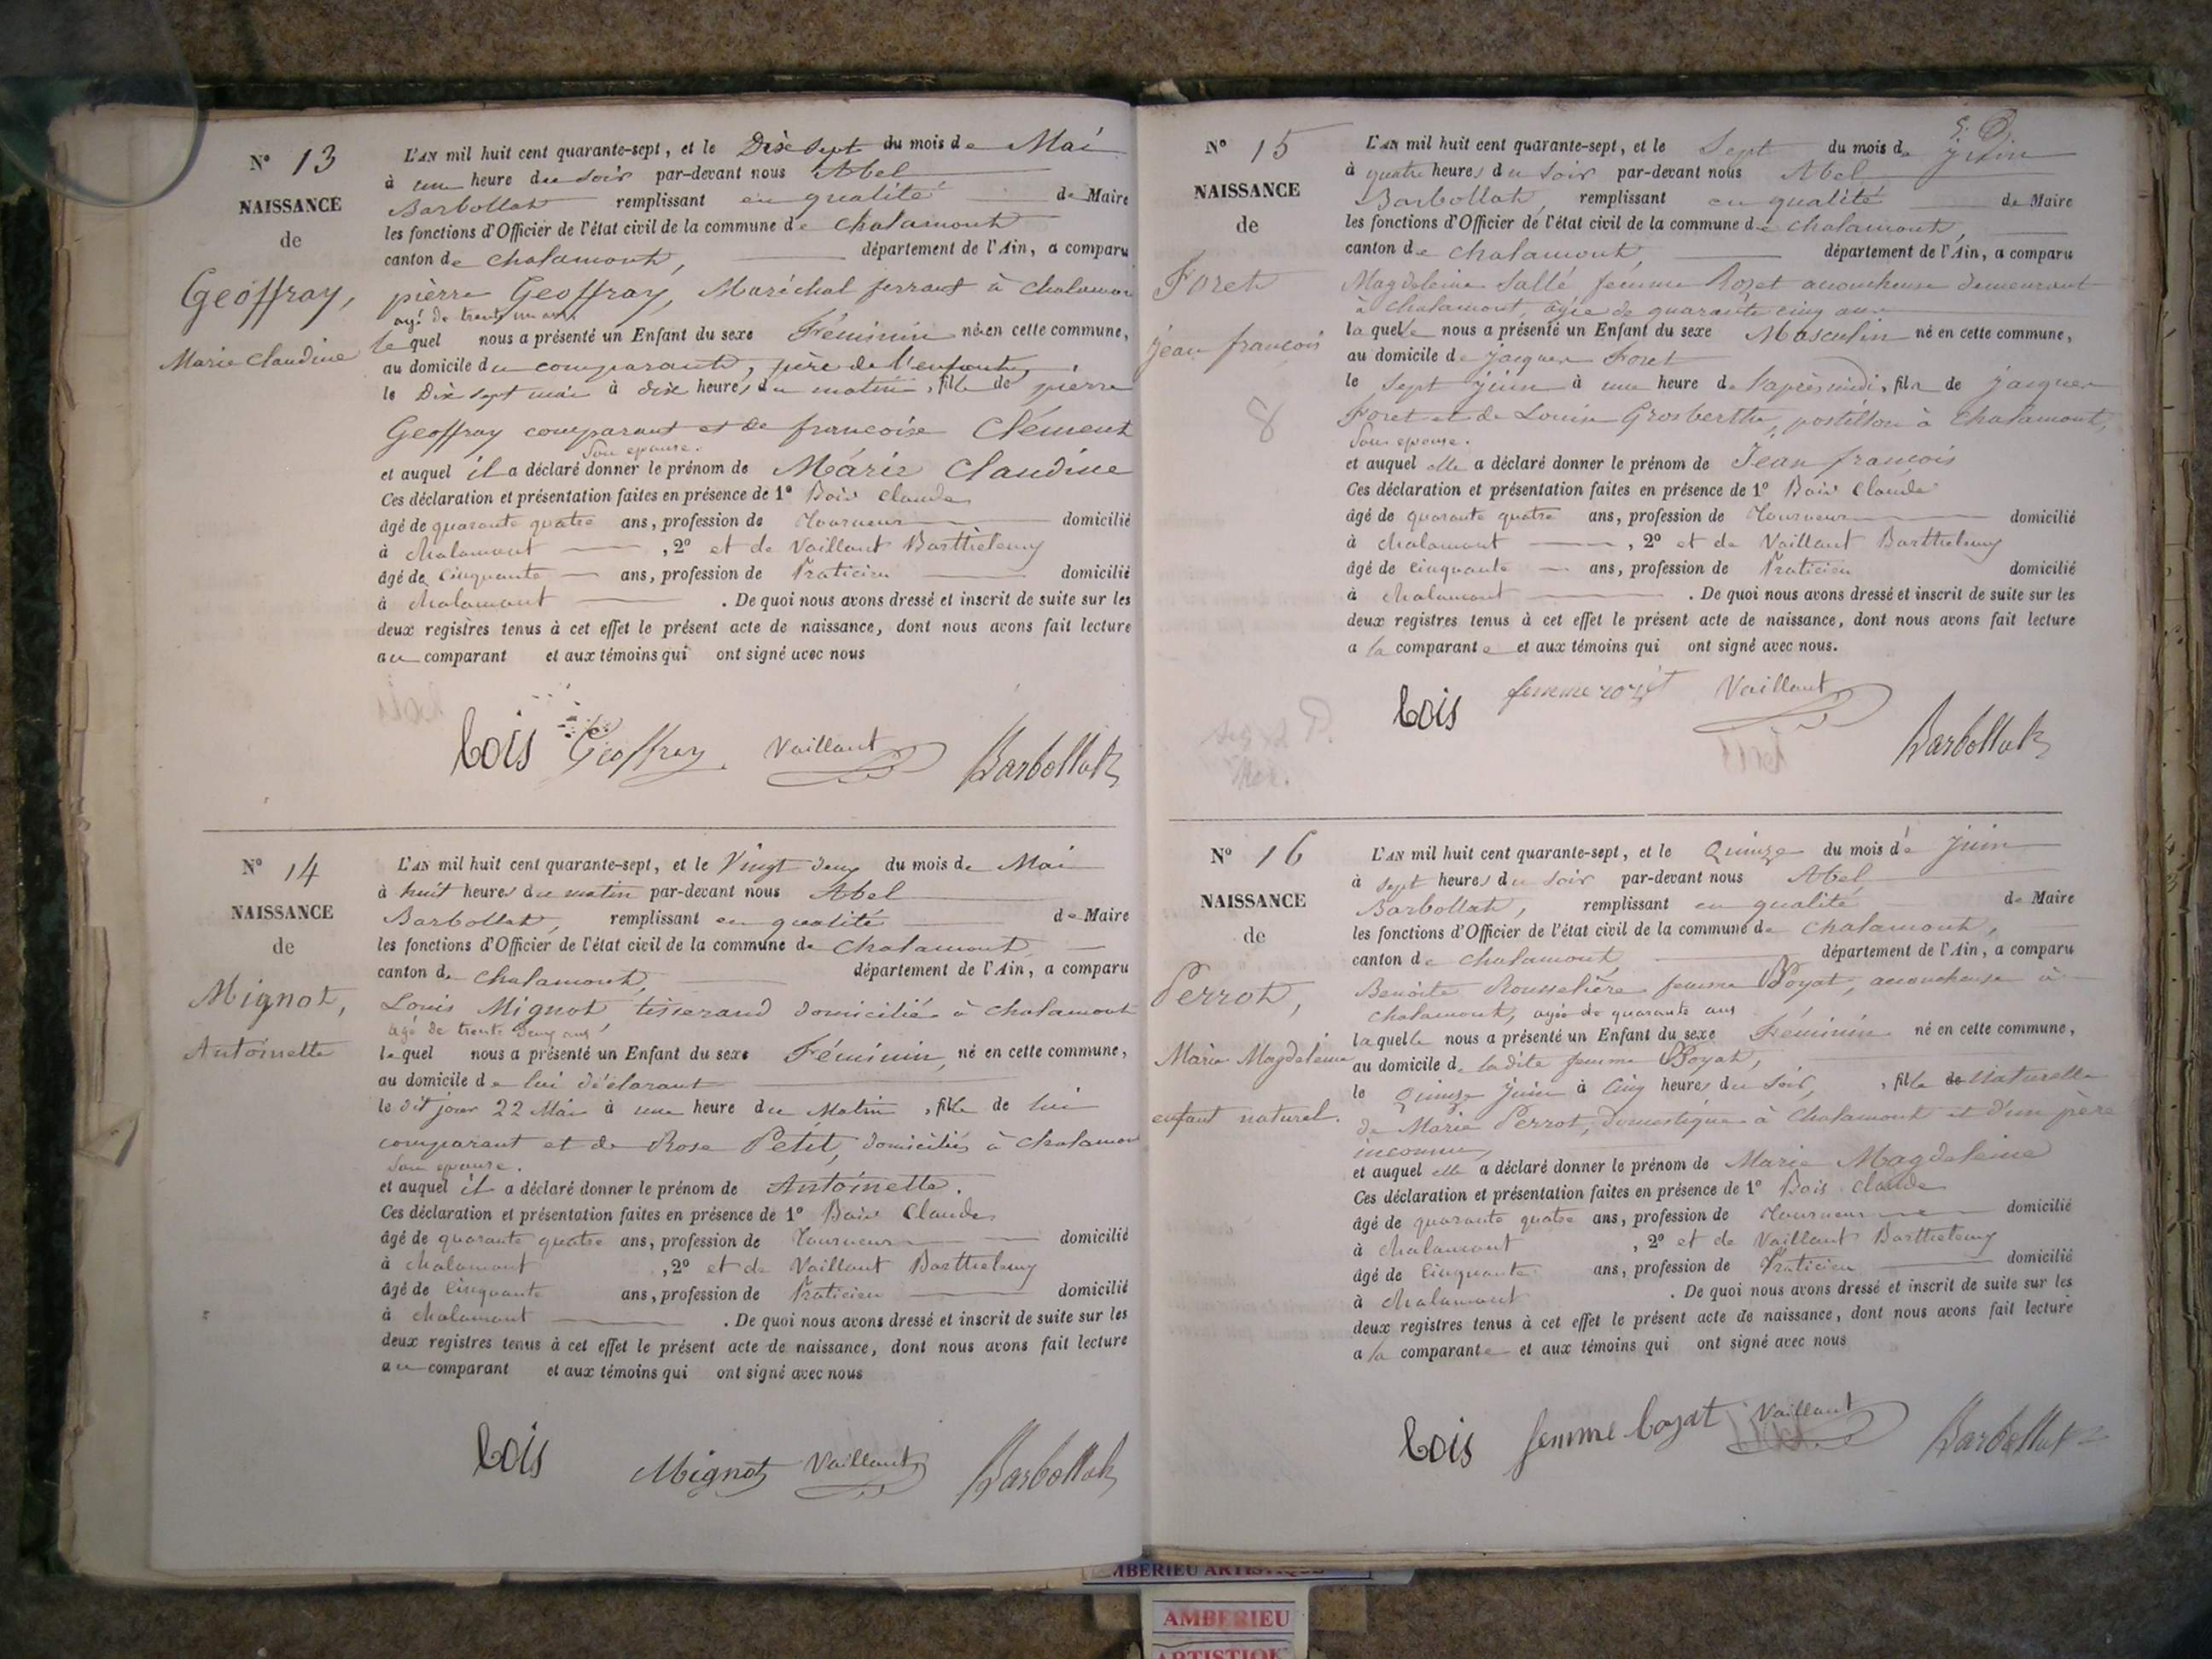 N° 13
NAISSANCE
de
Geoffray,
Marie Claudine
L'AN mil huit cent quarante-sept, et le Dix sept du mois de Mai
à une heure du soir par-devant nous Abel
Barbollat remplissant en qualité de Maire
les fonctions d'Officier de l'état civil de la commune de Chalamont
canton de Chalamont, département de l'Ain, a comparu
pièrre Geoffray, Maréchal ferrant à Chalamon
agé de trente un ans
lequel nous a présenté un Enfant du sexe Féminin né en cette commune,
au domicile du comparant, père de l'enfant,
le Dix sept mai à dix heures du matin, fille de pièrre
Geoffray comparant et de francoise Clément
Son epouse.
et auquel il a déclaré donner le prénom de Marie Claudine
Ces déclaration et présentation faites en présence de 1° Bois Claude
âgé de quarante quatre ans, profession de Tourneur domicilié
à Chalamont, 2° et de Vaillant Barthelemy
âgé de Cinquante ans, profession de Praticien domicilié
à Chalamont. De quoi nous avons dressé et inscrit de suite sur les
deux registres tenus à cet effet le présent acte de naissance, dont nous avons fait lecture
au comparant et aux témoins qui ont signé avec nous
bois Geoffray Vaillant Barbollat
N° 14
NAISSANCE
de
Mignot,
Antoinette
L'AN mil huit cent quarante-sept, et le Vingt deux du mois de Mai
à huit heures du matin par-devant nous Abel
Barbollat, remplissant en qualité de Maire
les fonctions d'Officier de l'état civil de la commune de Chalamont
canton de Chalamont, département de l'Ain, a comparu
Louis Mignot tisserand domicilié à Chalamont
agé de trente deux ans
lequel nous a présenté un Enfant du sexe Féminin, né en cette commune,
au domicile de lui déclarant
le dit jour 22 Mai à une heure du Matin, fille de lui
comparant et de Rose Petit, domiciliés à Chalamon
Son epouse.
et auquel il a déclaré donner le prénom de Antoinette.
Ces déclaration et présentation faites en présence de 1° Bois Claude
âgé de quarante quatre ans, profession de Tourneur domicilié
à Chalamont, 2° et de Vaillant Barthelemy
âgé de Cinquante ans, profession de Praticien domicilié
à Chalamont. De quoi nous avons dressé et inscrit de suite sur les
deux registres tenus à cet effet le présent acte de naissance, dont nous avons fait lecture
au comparant et aux témoins qui ont signé avec nous
bois Mignot Vaillant Barbollat
N° 15
NAISSANCE
de
Foret
jean francois
8
L'AN mil huit cent quarante-sept, et le Sept du mois de juin
à quatre heures du soir par-devant nous Abel
Barbollat, remplissant en qualité de Maire
les fonctions d'Officier de l'état civil de la commune de Chalamont,
canton de Chalamont, département de l'Ain, a comparu
Magdeleine Sallé femme Rozet accoucheuse demeurant
à Chalamont, agée de quarante cinq ans
laquelle nous a présenté un Enfant du sexe Masculin né en cette commune,
au domicile de jacques Foret
le Sept juin à une heure de l'après midi, fils de jacques
Foret et de Louise Grosberthe, postillon à Chalamont,
Son epouse.
et auquel elle a déclaré donner le prénom de Jean francois
Ces déclaration et présentation faites en présence de 1° Bois Claude
âgé de quarante quatre ans, profession de Tourneur domicilié
à Chalamont, 2° et de Vaillant Barthelemy
âgé de Cinquante ans, profession de Praticien domicilié
à Chalamont. De quoi nous avons dressé et inscrit de suite sur les
deux registres tenus à cet effet le présent acte de naissance, dont nous avons fait lecture
a la comparante et aux témoins qui ont signé avec nous.
bois femme rozet Vaillant Barbollat
N° 16
NAISSANCE
de
Perrot,
Marie Magdeleine
enfant naturel.
L'AN mil huit cent quarante-sept, et le Quinze du mois de juin
à sept heures du soir par-devant nous Abel
Barbollat, remplissant en qualité de Maire
les fonctions d'Officier de l'état civil de la commune de Chalamont,
canton de Chalamont, département de l'Ain, a comparu
Benoite Rousselière femme Boyat, accoucheuse à
Chalamont, agée de quarante ans
laquelle nous a présenté un Enfant du sexe Féminin né en cette commune,
au domicile de ladite femme Boyat,
le Quinze juin à Cinq heures du soir, fille de Naturelle
de Marie Perrot, domestique à Chalamont et d'un père
inconnu,
et auquel elle a déclaré donner le prénom de Marie Magdeleine
Ces déclaration et présentation faites en présence de 1° Bois Claude
âgé de quarante quatre ans, profession de Tourneur domicilié
à Chalamont, 2° et de Vaillant Barthelemy
âgé de Cinquante ans, profession de Praticien domicilié
à Chalamont. De quoi nous avons dressé et inscrit de suite sur les
deux registres tenus à cet effet le présent acte de naissance, dont nous avons fait lecture
a la comparante et aux témoins qui ont signé avec nous
bois femme boyat Vaillant Barbollat
AMBERIEU ARTISTIQUE
AMBERIEU
ARTISTIQUE